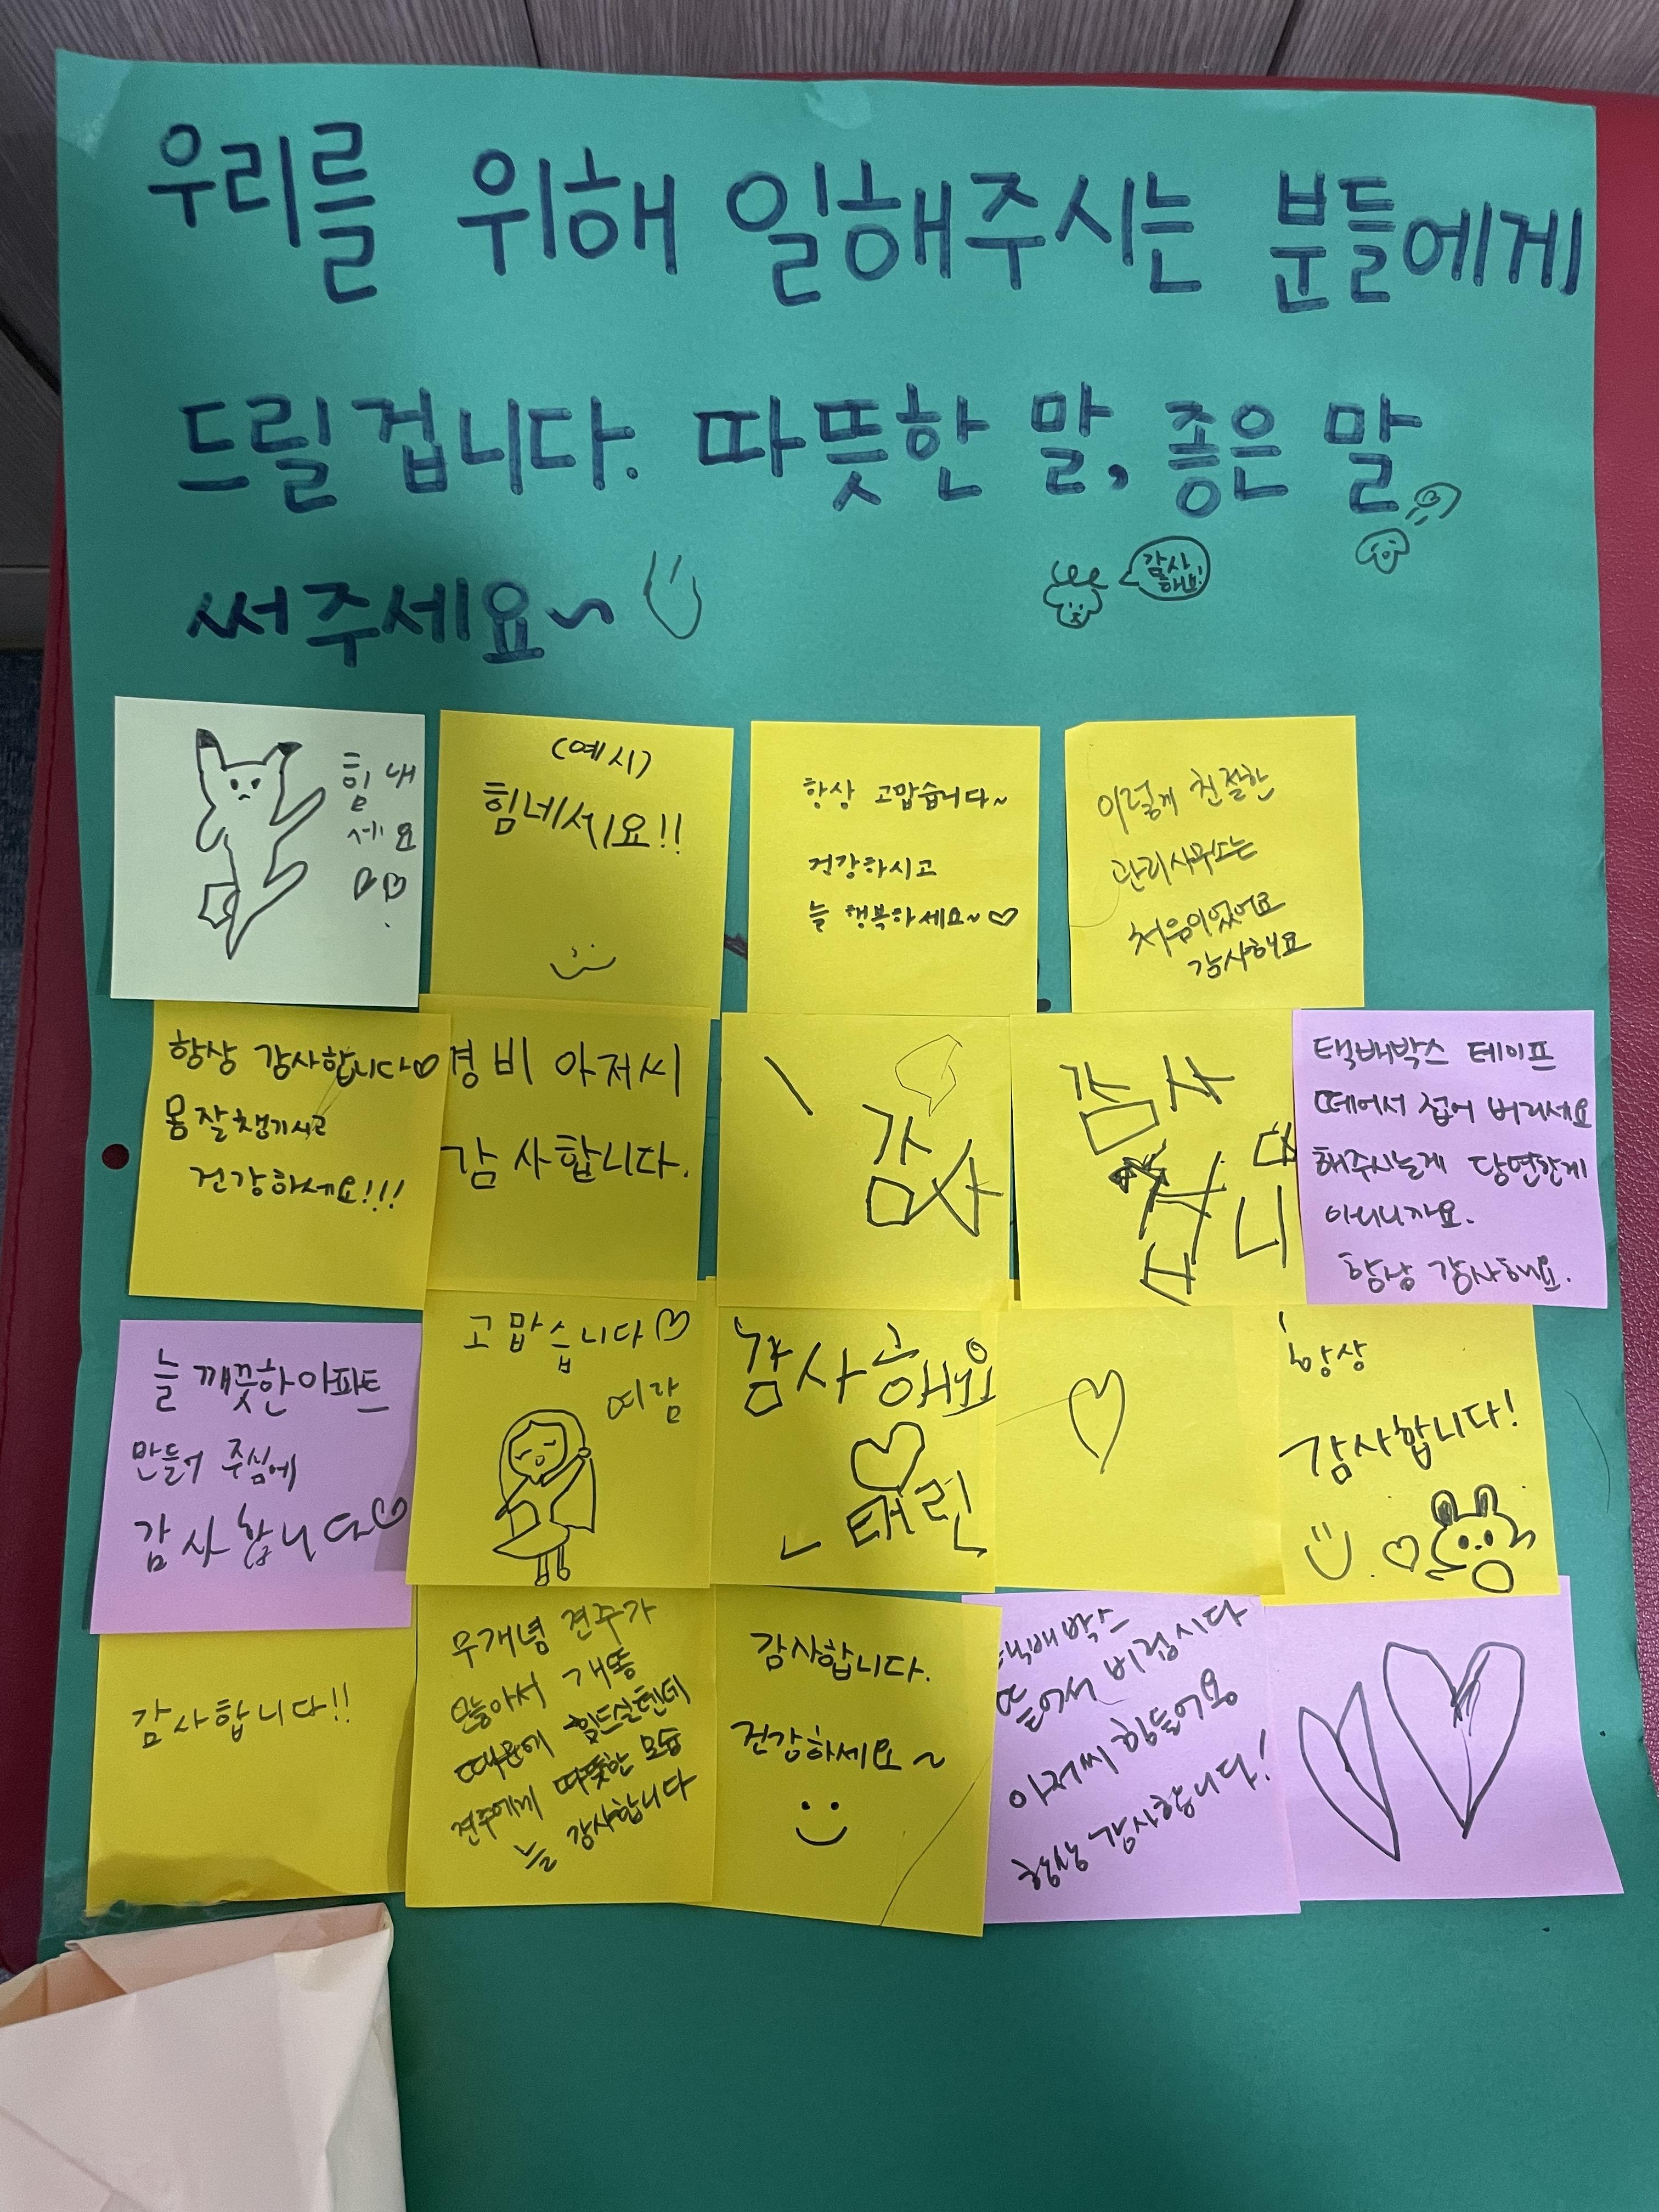 우리를 위해 일해주시는 분들에게
드릴겁니다. 따뜻한 말, 좋은 말
써주세요~
감사
해요!
힘내
세요
(예시)
힘네세요!!
항상 고맙습니다~
건강하시고
늘 행복하세요~♡
이렇게 친절한
관리사무소는
처음이었어요
감사해요
항상 감사합니다♡
몸 잘챙기시고
건강하세요!!!
경비 아저씨
감사합니다.
감
사
감사
니
택배박스 테이프
떼어서 접어 버리세요
해주시는게 당연한게
아니니까요.
항상 감사해요.
늘 깨끗한 아파트
만들어 주심에
감사합니다♡
고맙습니다♡
여람
감사해요
♡
태린
♡
항상
감사합니다!
♡
감사합니다!!
무개념 견주가
많아서 개똥
때문에 힘드실텐데
견주에게 따뜻한 모습
늘 감사합니다
감사합니다.
건강하세요~
택배박스
뜯어서 버립시다
아저씨 힘들어용
항상 감사합니다!